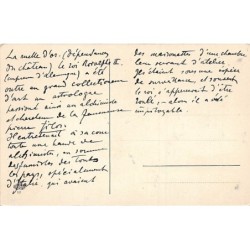 La ruelle d'or. (Dépendances
du château) le roi Rodolphe II
(empereur d'Allemagne) a été
outre un grand collectionneur
d'art un astrologue
passionné ainsi en alchimiste
et chercheur de la fameuse
pierre filos.
Il entretenait à sa cour
toute une bande de
alchimistes, en somme
des fumistes de toutes
les pays, spécialement
d'Italie qui avaient
des maisonnettes d'une chambre
leur servant d'atelier
Ils étaient sous une espèce
de surveillance et souvent
le roi s'apercevait d'être
roulé, alors il a été
impitoyable